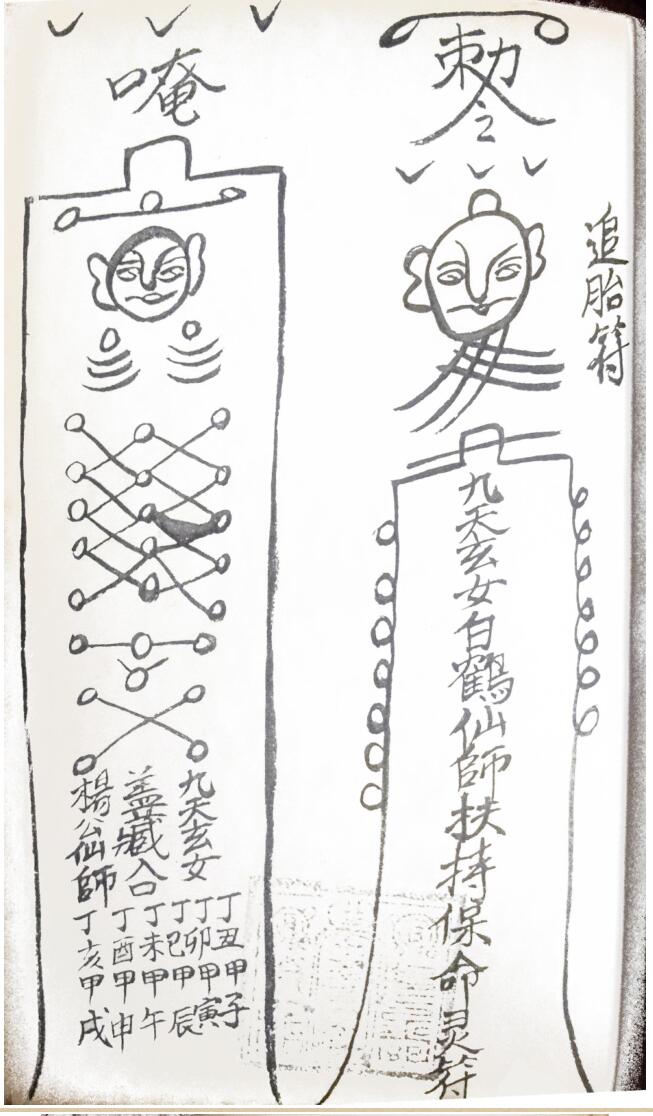 追胎符
敕令
九天玄女白鶴仙師扶持保命灵符
唵
九天玄女
蓋藏入口
楊公仙師
丁丑甲子
丁卯甲寅
丁巳甲辰
丁未甲午
丁酉甲申
丁亥甲戌